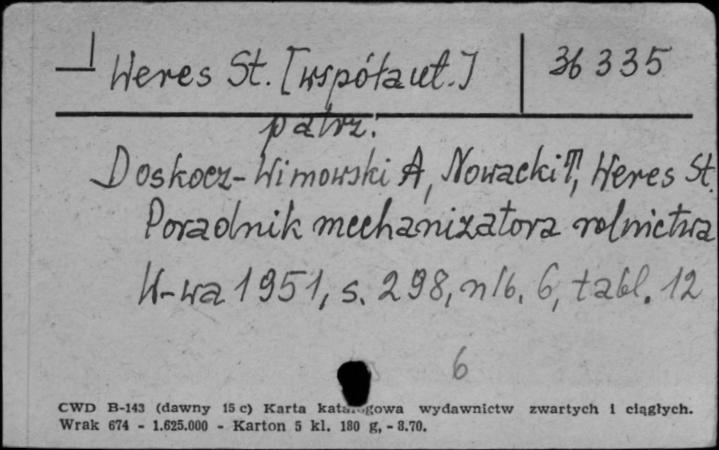 Weres St. [współaut.] 36335
patrz:
Doskocz-Wimowski A, Nowacki T, Weres St.
Poradnik mechanizatora rolnictwa
W-wa 1951, s. 298, nlb. 6, tabl. 12
6
CWD B-143 (dawny 15 c) Karta katalogowa wydawnictw zwartych i ciągłych.
Wrak 674 - 1.625.000 - Karton 5 kl. 180 g, - 8.70.